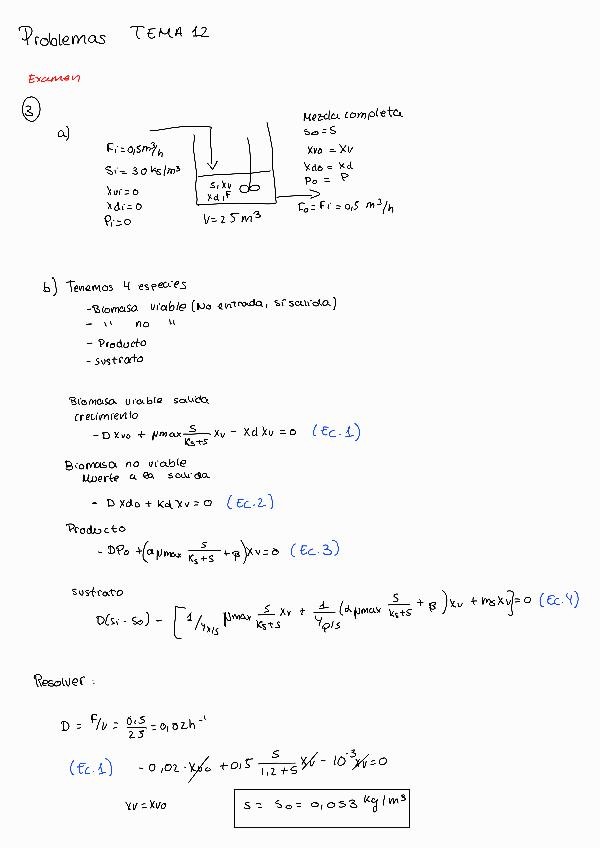 Problemas TEMA 12
Examen
3
a)
Fi = 0,5 m³/h
Si = 30 ks/m³
Xvi = 0
Xdi = 0
Pi = 0
S, Xv
Xd, P
V = 25 m³
Mezcla completa
So = S
Xvo = Xv
Xdo = Xd
Po = P
Fo = Fi = 0,5 m³/h
b) Tenemos 4 especies
- Biomasa viable (No entrada, sí salida)
- " no "
- Producto
- Sustrato
Biomasa viable salida
crecimiento
- D Xvo + μmax S/(Ks+S) Xv - Xd Xv = 0 (Ec.1)
Biomasa no viable
Muerte a la salida
- D Xdo + Kd Xv = 0 (Ec.2)
Producto
- DPo + (α μmax S/(Ks+S) + β) Xv = 0 (Ec.3)
Sustrato
D(Si - So) - [1/Yx/s μmax S/(Ks+S) Xv + 1/Yp/s (α μmax S/(Ks+S) + β) Xv + ms Xv] = 0 (Ec.4)
Resolver:
D = F/V = 0,5/25 = 0,02 h⁻¹
(Ec.1) - 0,02 · Xvo + 0,5 S/(1,2+S) Xv - 10⁻³ Xv = 0
Xv = Xvo
S = So = 0,053 kg/m³